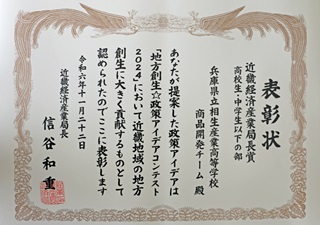 表彰状
近畿経済産業局長賞
高校生・中学生以下の部
兵庫県立相生産業高等学校
商品開発チーム 殿
あなたが提案した政策アイデアは
「地方創生☆政策アイデアコンテスト
2024」において近畿地域の地方
創生に大きく貢献するものとして
認められたのでここに表彰します
令和六年十一月二十二日
近畿経済産業局長
信谷和重